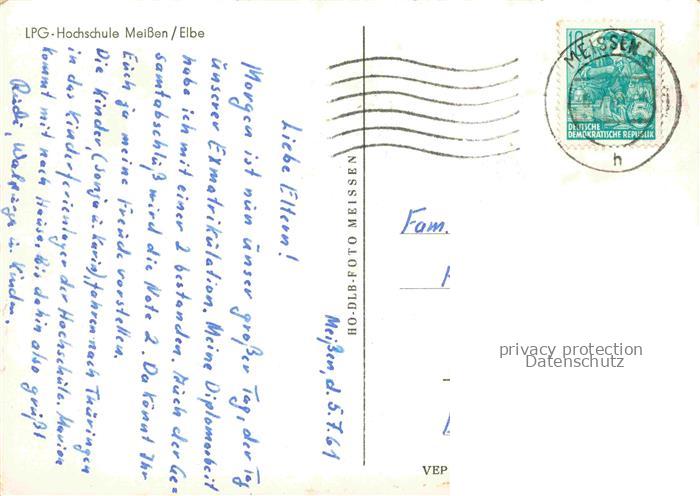 LPG-Hochschule Meißen/Elbe
Meißen, d. 5.7.61
Liebe Eltern!
Morgen ist nun unser großer Tag, der Tag
unserer Exmatrikulation. Meine Diplomarbeit
habe ich mit einer 2 bestanden. Auch der Ge=
samtabschluß wird die Note 2. Da könnt Ihr
Euch ja meine Freude vorstellen.
Die Kinder, (Sonja u. Karin) fahren nach Thüringen
in das Kinderferienlager der Hochschule. Marion
kommt mit nach Hause. Bis dahin also grüßt
Rudi, Walburga u. Kinder.
HO-DLB-FOTO MEISSEN
MEISSEN
h
10
DEUTSCHE
DEMOKRATISCHE REPUBLIK
Fam.
privacy protection
Datenschutz
VEP